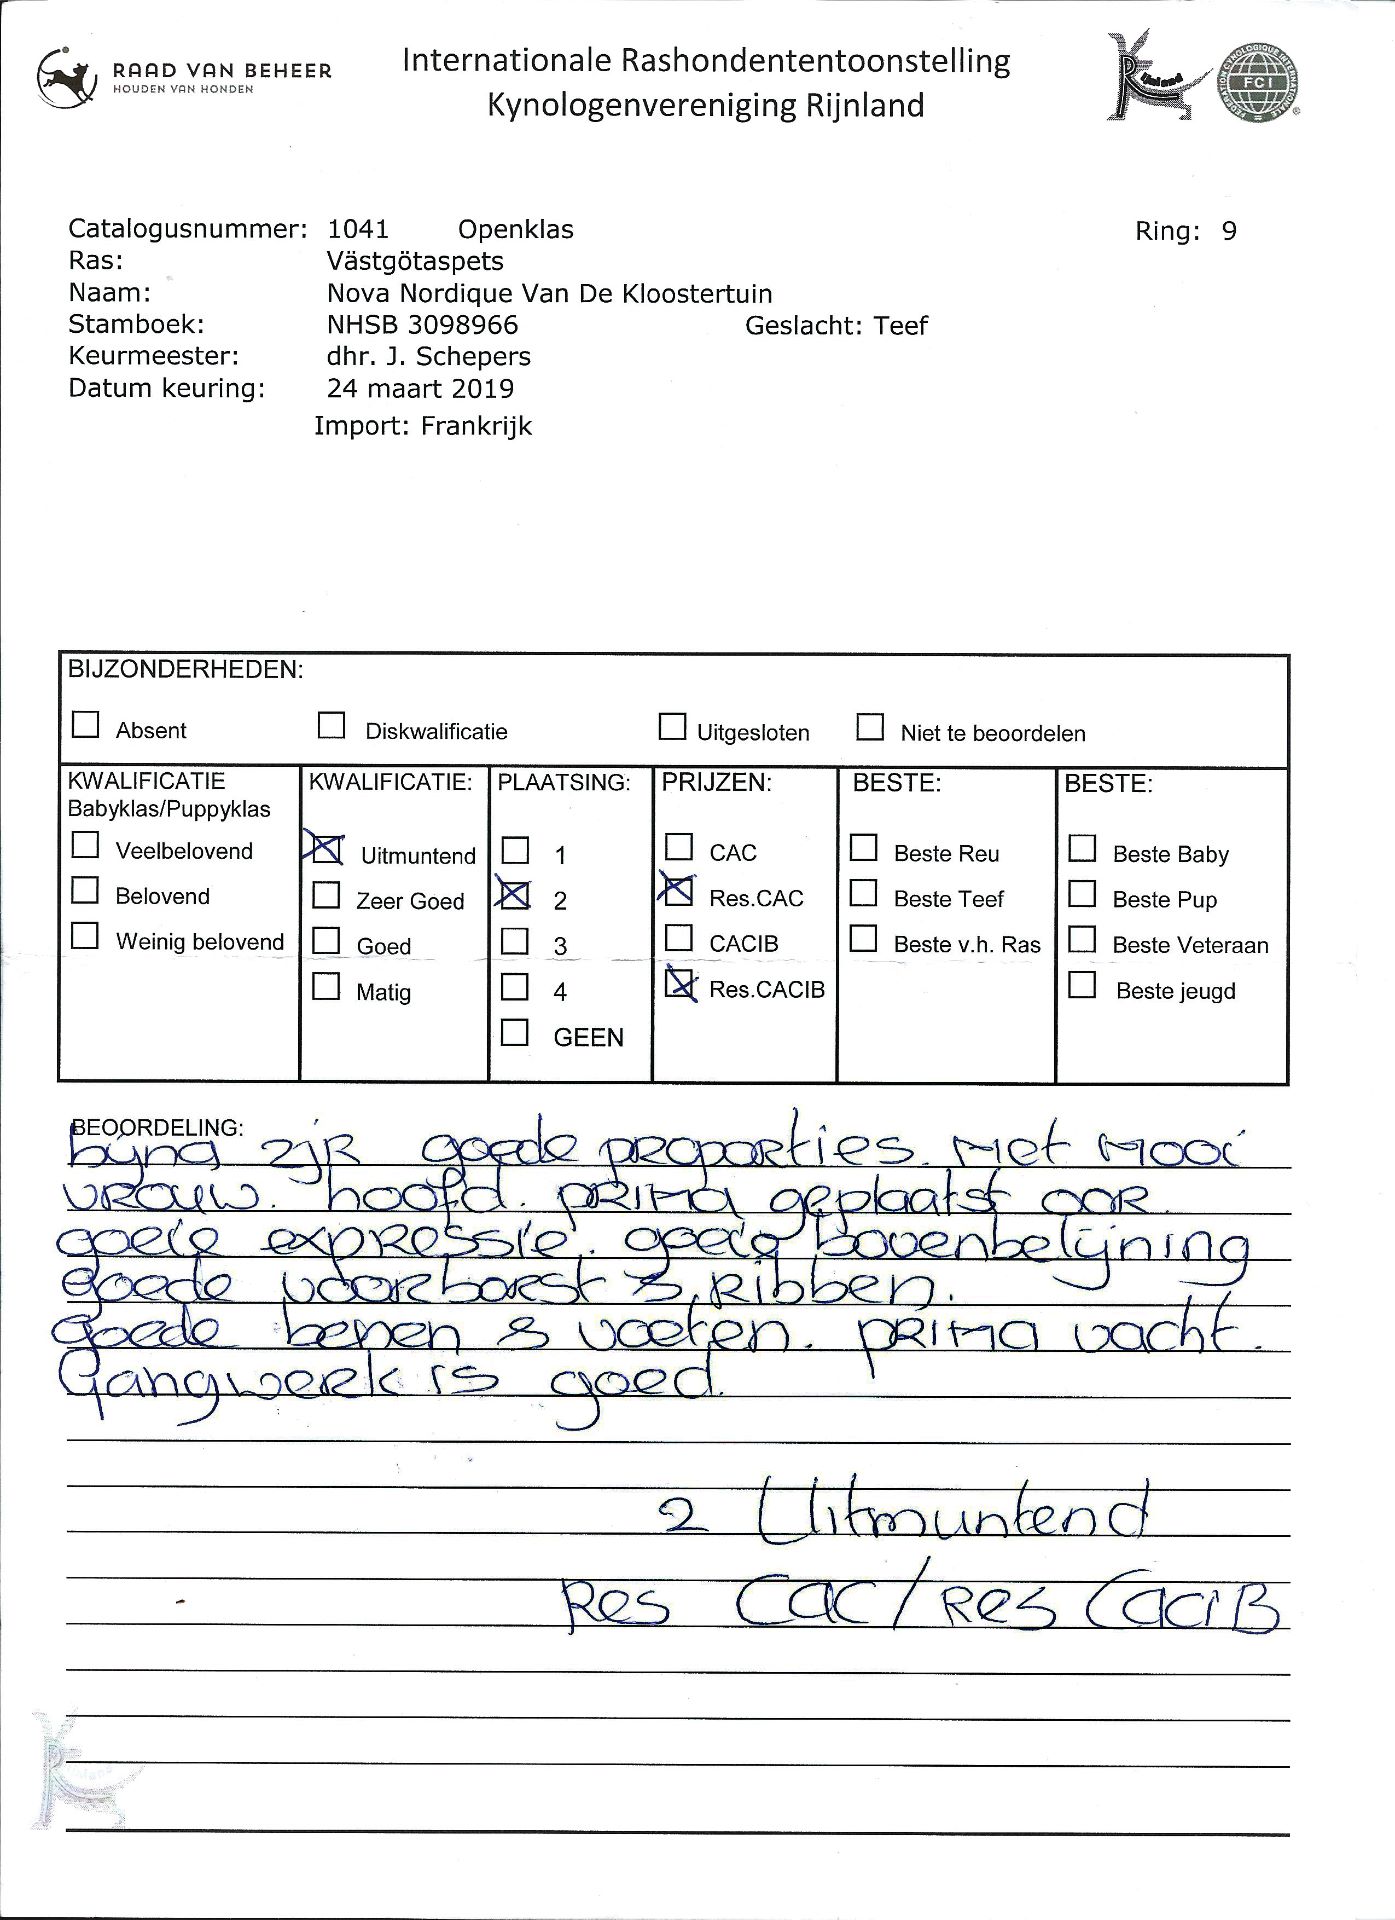 RAAD VAN BEHEER
HOUDEN VAN HONDEN
Internationale Rashondententoonstelling
Kynologenvereniging Rijnland
Rijnland
FEDERATION CYNOLOGIQUE INTERNATIONALE
FCI
®
Catalogusnummer: 1041 Openklas Ring: 9
Ras: Västgötaspets
Naam: Nova Nordique Van De Kloostertuin
Stamboek: NHSB 3098966 Geslacht: Teef
Keurmeester: dhr. J. Schepers
Datum keuring: 24 maart 2019
Import: Frankrijk
BIJZONDERHEDEN:
Absent Diskwalificatie Uitgesloten Niet te beoordelen
KWALIFICATIE KWALIFICATIE: PLAATSING: PRIJZEN: BESTE: BESTE:
Babyklas/Puppyklas
Veelbelovend Uitmuntend 1 CAC Beste Reu Beste Baby
Belovend Zeer Goed 2 Res.CAC Beste Teef Beste Pup
Weinig belovend Goed 3 CACIB Beste v.h. Ras Beste Veteraan
Matig 4 Res.CACIB Beste jeugd
GEEN
BEOORDELING:
bijna 2jR goede proporties. Met mooi
vrouw. hoofd. prima geplaatst oor.
goeie expressie. goeie bovenbelijning
goede voorborst & ribben.
goede benen & voeten. prima vacht.
Gangwerk is goed.
2 Uitmuntend
Res CAC / Res CACIB